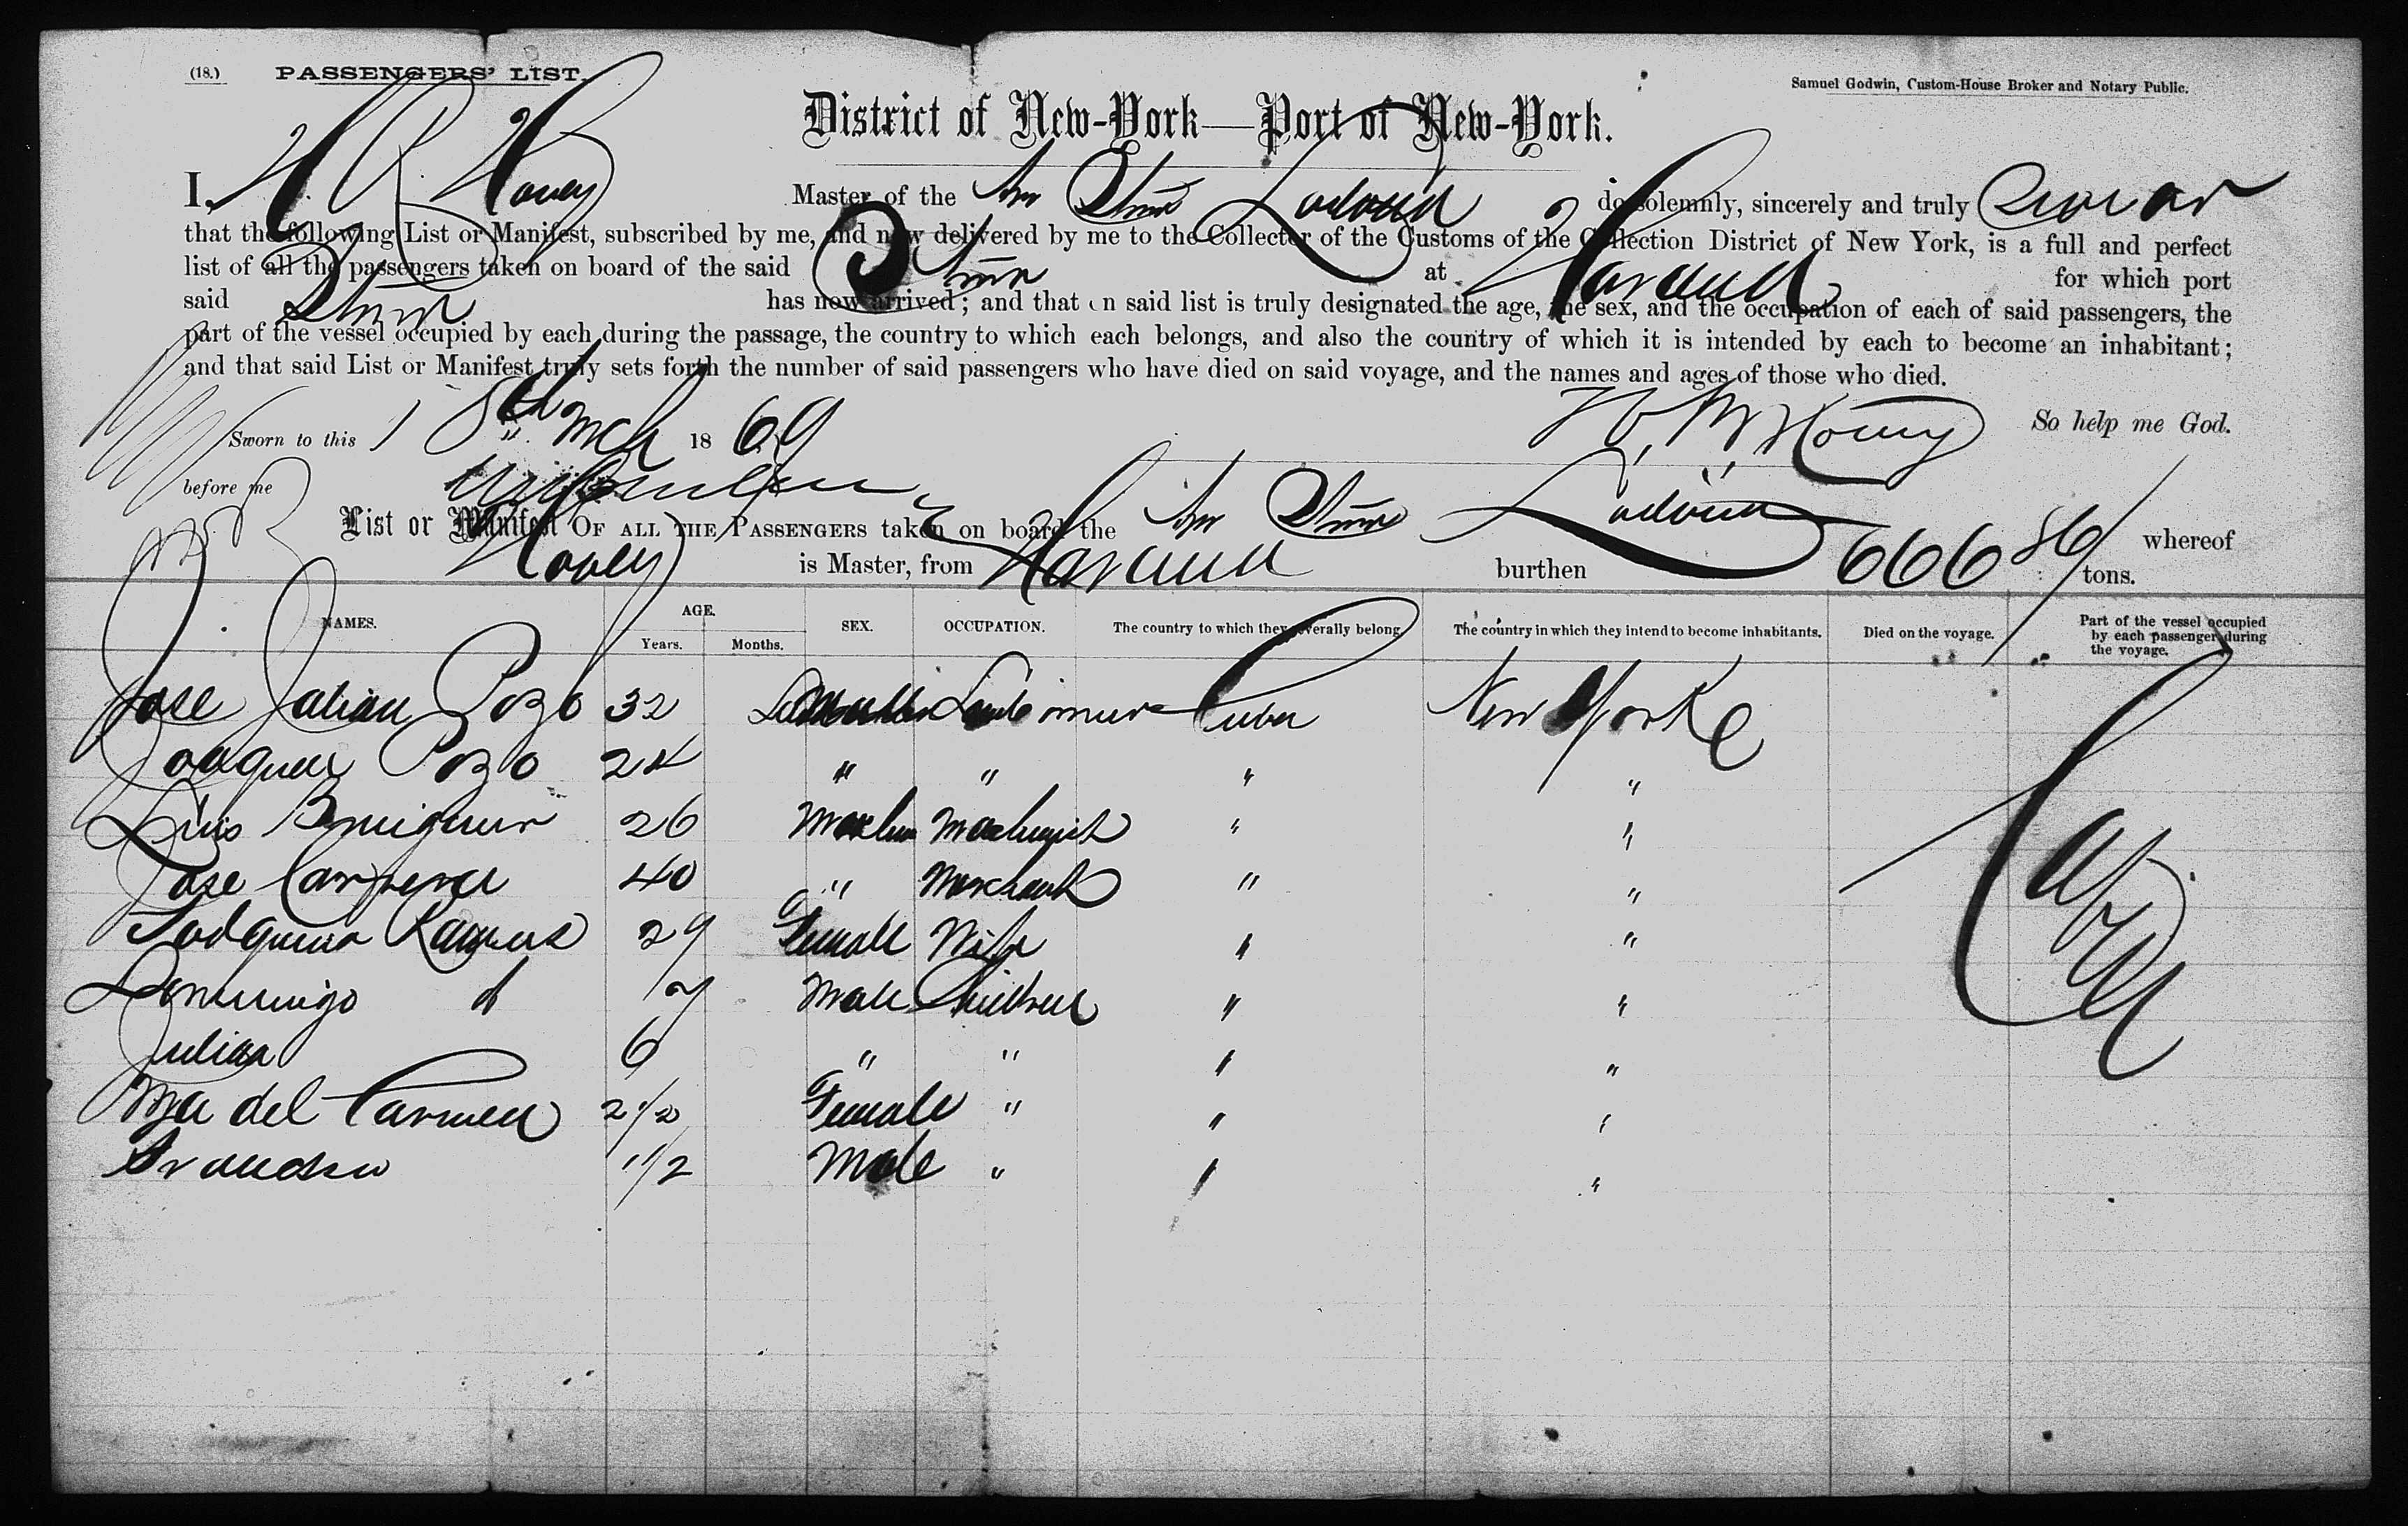 (18.) PASSENGERS' LIST.
Samuel Godwin, Custom-House Broker and Notary Public.
District of New-York—Port of New-York.
I, H. R. Hovey Master of the Am Stmr do solemnly, sincerely and truly Swear
that the following List or Manifest, subscribed by me, and now delivered by me to the Collector of the Customs of the Collection District of New York, is a full and perfect
list of all the passengers taken on board of the said Stmr at Havana for which port
said Stmr has now arrived; and that on said list is truly designated the age, the sex, and the occupation of each of said passengers, the
part of the vessel occupied by each during the passage, the country to which each belongs, and also the country of which it is intended by each to become an inhabitant;
and that said List or Manifest truly sets forth the number of said passengers who have died on said voyage, and the names and ages of those who died.
Sworn to this 18th " Mch 1869 Hovey So help me God.
before me
List or Manifest OF ALL THE PASSENGERS taken on board the Am Stmr whereof
Hovey is Master, from Havana burthen 666 86/ tons.
NAMES. AGE. Years. Months. SEX. OCCUPATION. The country to which they severally belong. The country in which they intend to become inhabitants. Died on the voyage. Part of the vessel occupied by each passenger during the voyage.
Jose Julian Pozo 32 Cuba New York Cabin
Pozo 24 " " " "
Luis 26 Machinist " "
Jose 40 " Merchant " "
Ramos 29 Female Wife " "
Domingo d 7 Male Children " "
Julian 6 " " " "
Ma del Carmen 2 1/2 Female " " "
Francisco 1 1/2 Male " " "